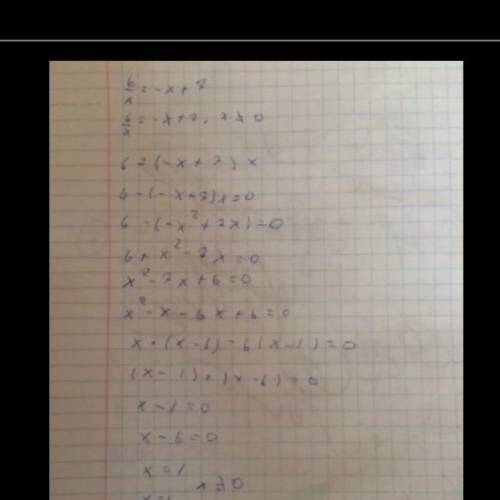 6/x = -x + 7
6/x = -x + 7, x ≠ 0
6 = (-x + 7) x
6 - (-x + 7)x = 0
6 - (-x² + 7x) = 0
6 + x² - 7x = 0
x² - 7x + 6 = 0
x² - x - 6x + 6 = 0
x · (x - 1) - 6(x - 1) = 0
(x - 1) · (x - 6) = 0
x - 1 = 0
x - 6 = 0
x = 1
x ≠ 0